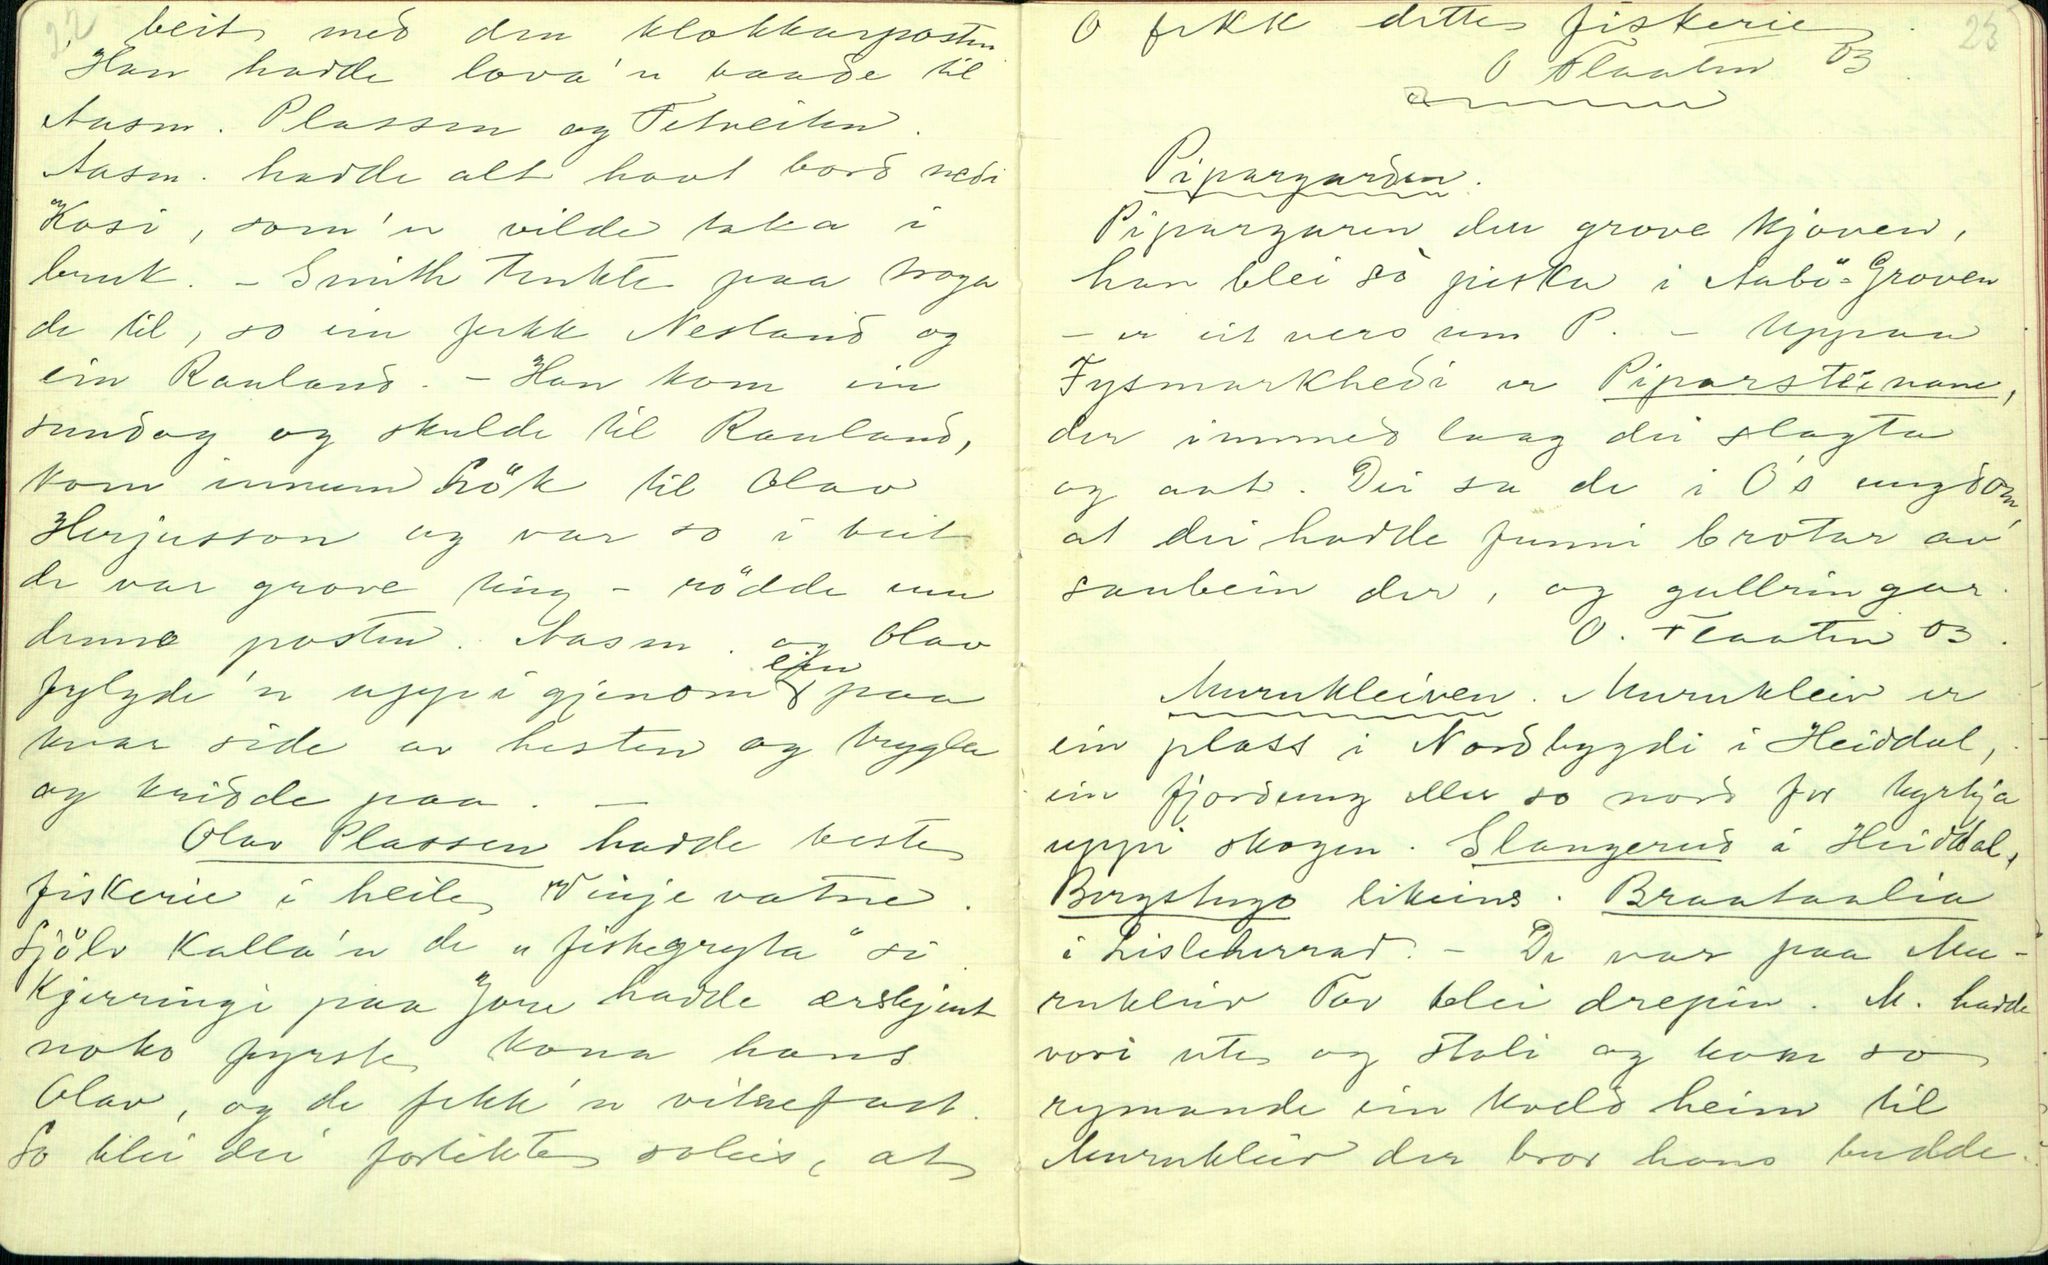 22
beit med den klokkarposten
Han hadde lova'n baade til
Aasm. Plassen og Tetveiten.
Aasm. hadde alt havt bord nedi
Kosi, som'n vilde taka i
bruk. - Smith trukte paa noga
de til, so ein fekk Nesland og
ein Rauland. - Han kom ein
sundag og skulde til Rauland,
kom innum Krök til Olav
Herjusson og var so i beit
de var grove ting - rödde um
denne posten. Aasm. og Olav
fylgde'n uppigjenom ein paa
kvar side av hesten og tvygla
og kridde paa. -
Olav Plassen hadde beste
fiskerie i heile Vinjevatne.
Sjölv kalla'n de "fiskegryta" si
Kjerringi paa Jore hadde ærskjent
noko fyrste kona hans
Olav, og de fekk'n vitnefast.
So blei dei forlikte soleis, at
23
O fekk dette fiskerie.
O Flaaten 03.
Pipargarden.
Pipargaren den grove kjöven,
han blei so piska i Aabö-Groven
- er eit vers um P. - Uppaa
Fysmarkhedi er Piparsteinane,
der immed laag dei slagta
og aat. Dei sa de i O's ungdom,
at dei hadde funni brotar av
saubein der, og gullringar.
O. Flaaten 03.
Murukleiven. Murukleiv er
ein plass i Nordbygdi i Heiddal,
ein fjordung eller so nord for kyrkja
uppi skogen. Slangerud i Heiddal,
Bergstugo likeins. Braataalia
i Lisleherrad. - De var paa Mu-
rukleiv Tov blei drepin. M. hadde
vori ute og stoli og kom so
rymande ein kveld heim til
Murukleiv der bror hans budde.